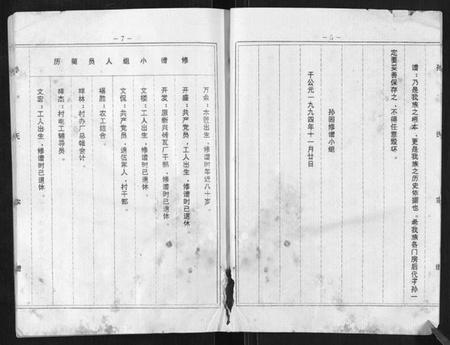 — 5 —
谱:乃是我族之根本,更是我族之历史依据也,希我族各门房后代子孙一
定要妥善保存之,不得任意毁坏。
孙园修谱小组
于公元一九九四年十一月廿日
— 7 —
修谱小组人员简历
万俞:木匠出生,修谱时年近八十岁。
开盛:共产党员,工人出生,修谱时已退休。
开发:原新兴砖瓦厂干部,修谱时已退休。
文楼:工人出生,修谱时已退休。
文保:共产党员,退伍军人,村干部。
堪胜:农工结合。
祥林:村办厂总帐会计。
祥杰:村电工辅导员。
文宏:工人出生,修谱时已退休。